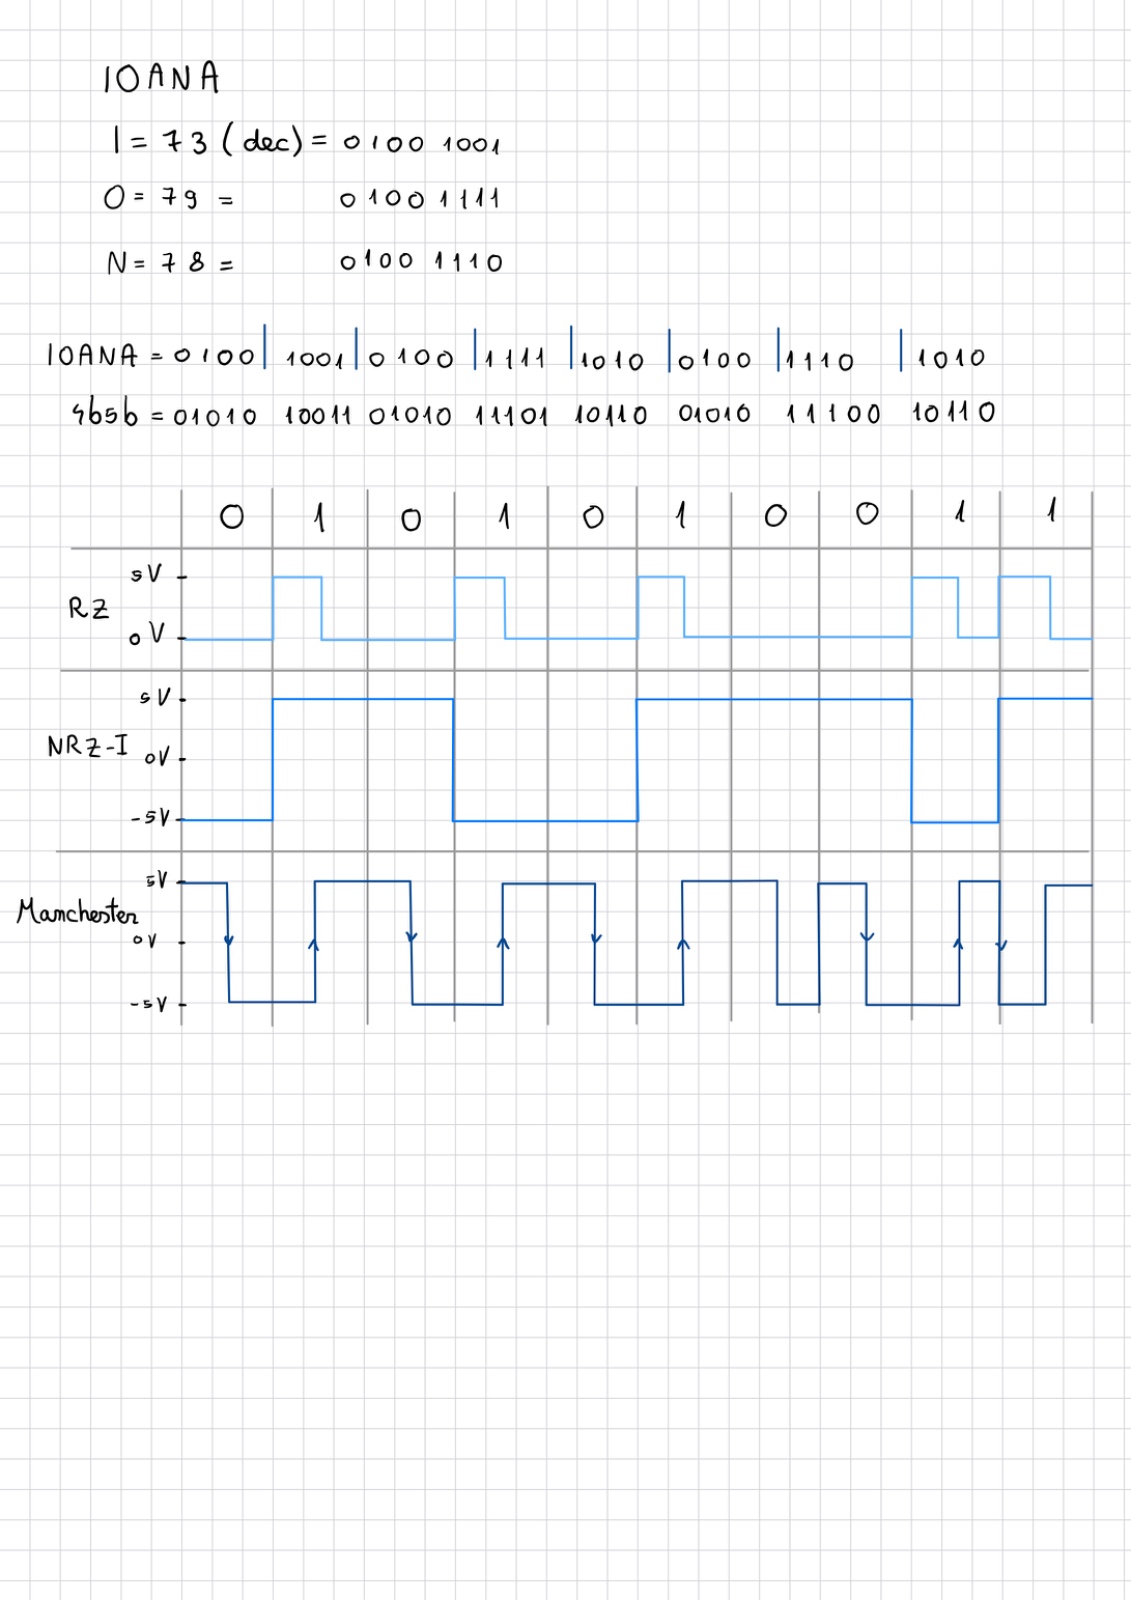 IOANA
I = 73 (dec) = 0100 1001
O = 79 = 0100 1111
N = 78 = 0100 1110
IOANA = 0100 | 1001 | 0100 | 1111 | 1010 | 0100 | 1110 | 1010
4b5b = 01010 10011 01010 11101 10110 01010 11100 10110
0 1 0 1 0 1 0 0 1 1
5V
RZ
0V
5V
NRZ-I
0V
-5V
5V
Manchester
0V
-5V